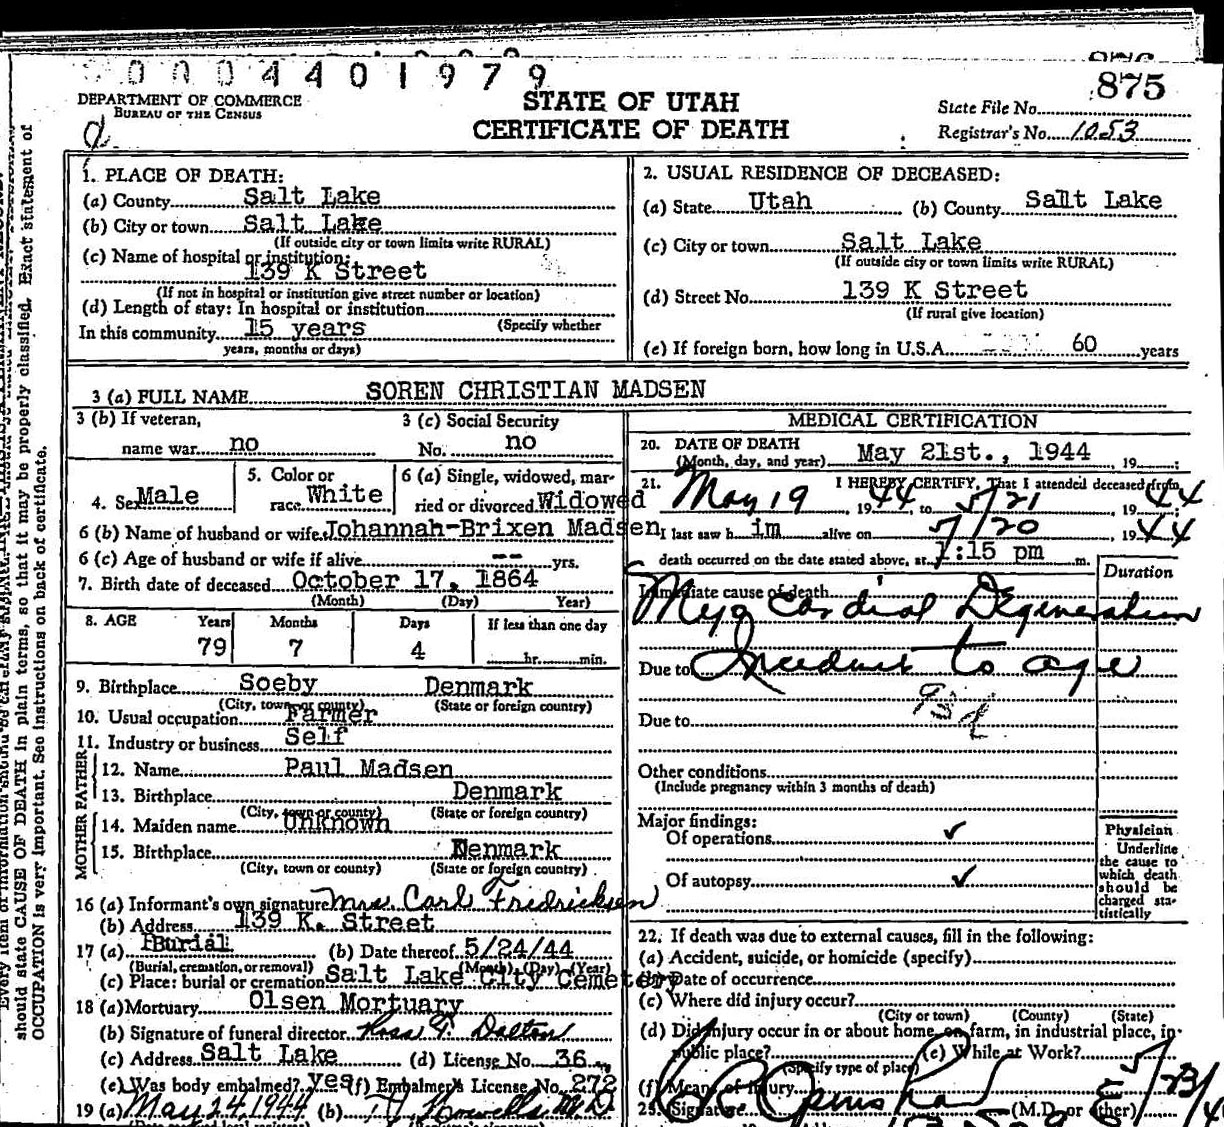 0004401979
875
DEPARTMENT OF COMMERCE
BUREAU OF THE CENSUS
STATE OF UTAH
CERTIFICATE OF DEATH
State File No.
Registrar's No. 1053
1. PLACE OF DEATH:
(a) County Salt Lake
(b) City or town Salt Lake
(If outside city or town limits write RURAL)
(c) Name of hospital or institution:
139 K Street
(If not in hospital or institution give street number or location)
(d) Length of stay: In hospital or institution
In this community 15 years (Specify whether
years, months or days)
2. USUAL RESIDENCE OF DECEASED:
(a) State Utah (b) County Salt Lake
(c) City or town Salt Lake
(If outside city or town limits write RURAL)
(d) Street No. 139 K Street
(If rural give location)
(e) If foreign born, how long in U.S.A. 60 years
3 (a) FULL NAME SOREN CHRISTIAN MADSEN
3 (b) If veteran,
name war no
3 (c) Social Security
No. no
4. Sex Male
5. Color or
race White
6 (a) Single, widowed, mar-
ried or divorced Widowed
6 (b) Name of husband or wife Johannah-Brixen Madsen
6 (c) Age of husband or wife if alive -- yrs.
7. Birth date of deceased October 17, 1864
(Month) (Day) Year)
8. AGE Years Months Days If less than one day
79 7 4 hr. min.
9. Birthplace Soeby Denmark
(City, town or county) (State or foreign country)
10. Usual occupation Farmer
11. Industry or business Self
FATHER
12. Name Paul Madsen
13. Birthplace Denmark
(City, town or county) (State or foreign country)
MOTHER
14. Maiden name Unknown
15. Birthplace Denmark
(City, town or county) (State or foreign country)
16 (a) Informant's own signature Mrs. Carl Fredricksen
(b) Address 139 K. Street
17 (a) Burial (b) Date thereof 5/24/44
(Burial, cremation, or removal) (Month) (Day) (Year)
(c) Place: burial or cremation Salt Lake City Cemetery
18 (a) Mortuary Olsen Mortuary
(b) Signature of funeral director Ross T. Dalton
(c) Address Salt Lake (d) License No. 36
(e) Was body embalmed? yes (f) Embalmer's License No. 272
19 (a) May 24, 1944 (b)
MEDICAL CERTIFICATION
20. DATE OF DEATH
(Month, day, and year) May 21st., 1944, 19 ;
21. I HEREBY CERTIFY, That I attended deceased from
May 19, 1944 to 5/21, 1944;
I last saw him alive on 5/20, 1944
death occurred on the date stated above, at 1:15 pm m.
Duration
Immediate cause of death
Myo cardial Degeneration
Due to to age
Due to
Other conditions
(Include pregnancy within 3 months of death)
Major findings:
Of operations ✓
Of autopsy ✓
Physician
Underline
the cause to
which death
should be
charged sta-
tistically
22. If death was due to external causes, fill in the following:
(a) Accident, suicide, or homicide (specify)
(b) Date of occurrence
(c) Where did injury occur?
(City or town) (County) (State)
(d) Did injury occur in or about home, on farm, in industrial place, in
public place? (e) While at Work?
(Specify type of place)
(f) Means of Injury
23. (Signature (M.D. or other)
should state CAUSE OF DEATH in plain terms, so that it may be properly classified. Exact statement of
OCCUPATION is very important. See instructions on back of certificate.